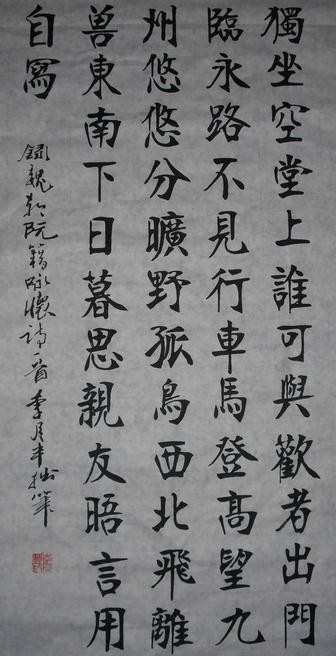 獨坐空堂上誰可與歡者出門
臨永路不見行車馬登髙望九
州悠悠分曠野孤鳥西北飛離
兽東南下日暮思親友晤言用
自寫
錄魏朝阮籍咏懷诗一首 李月半拙筆